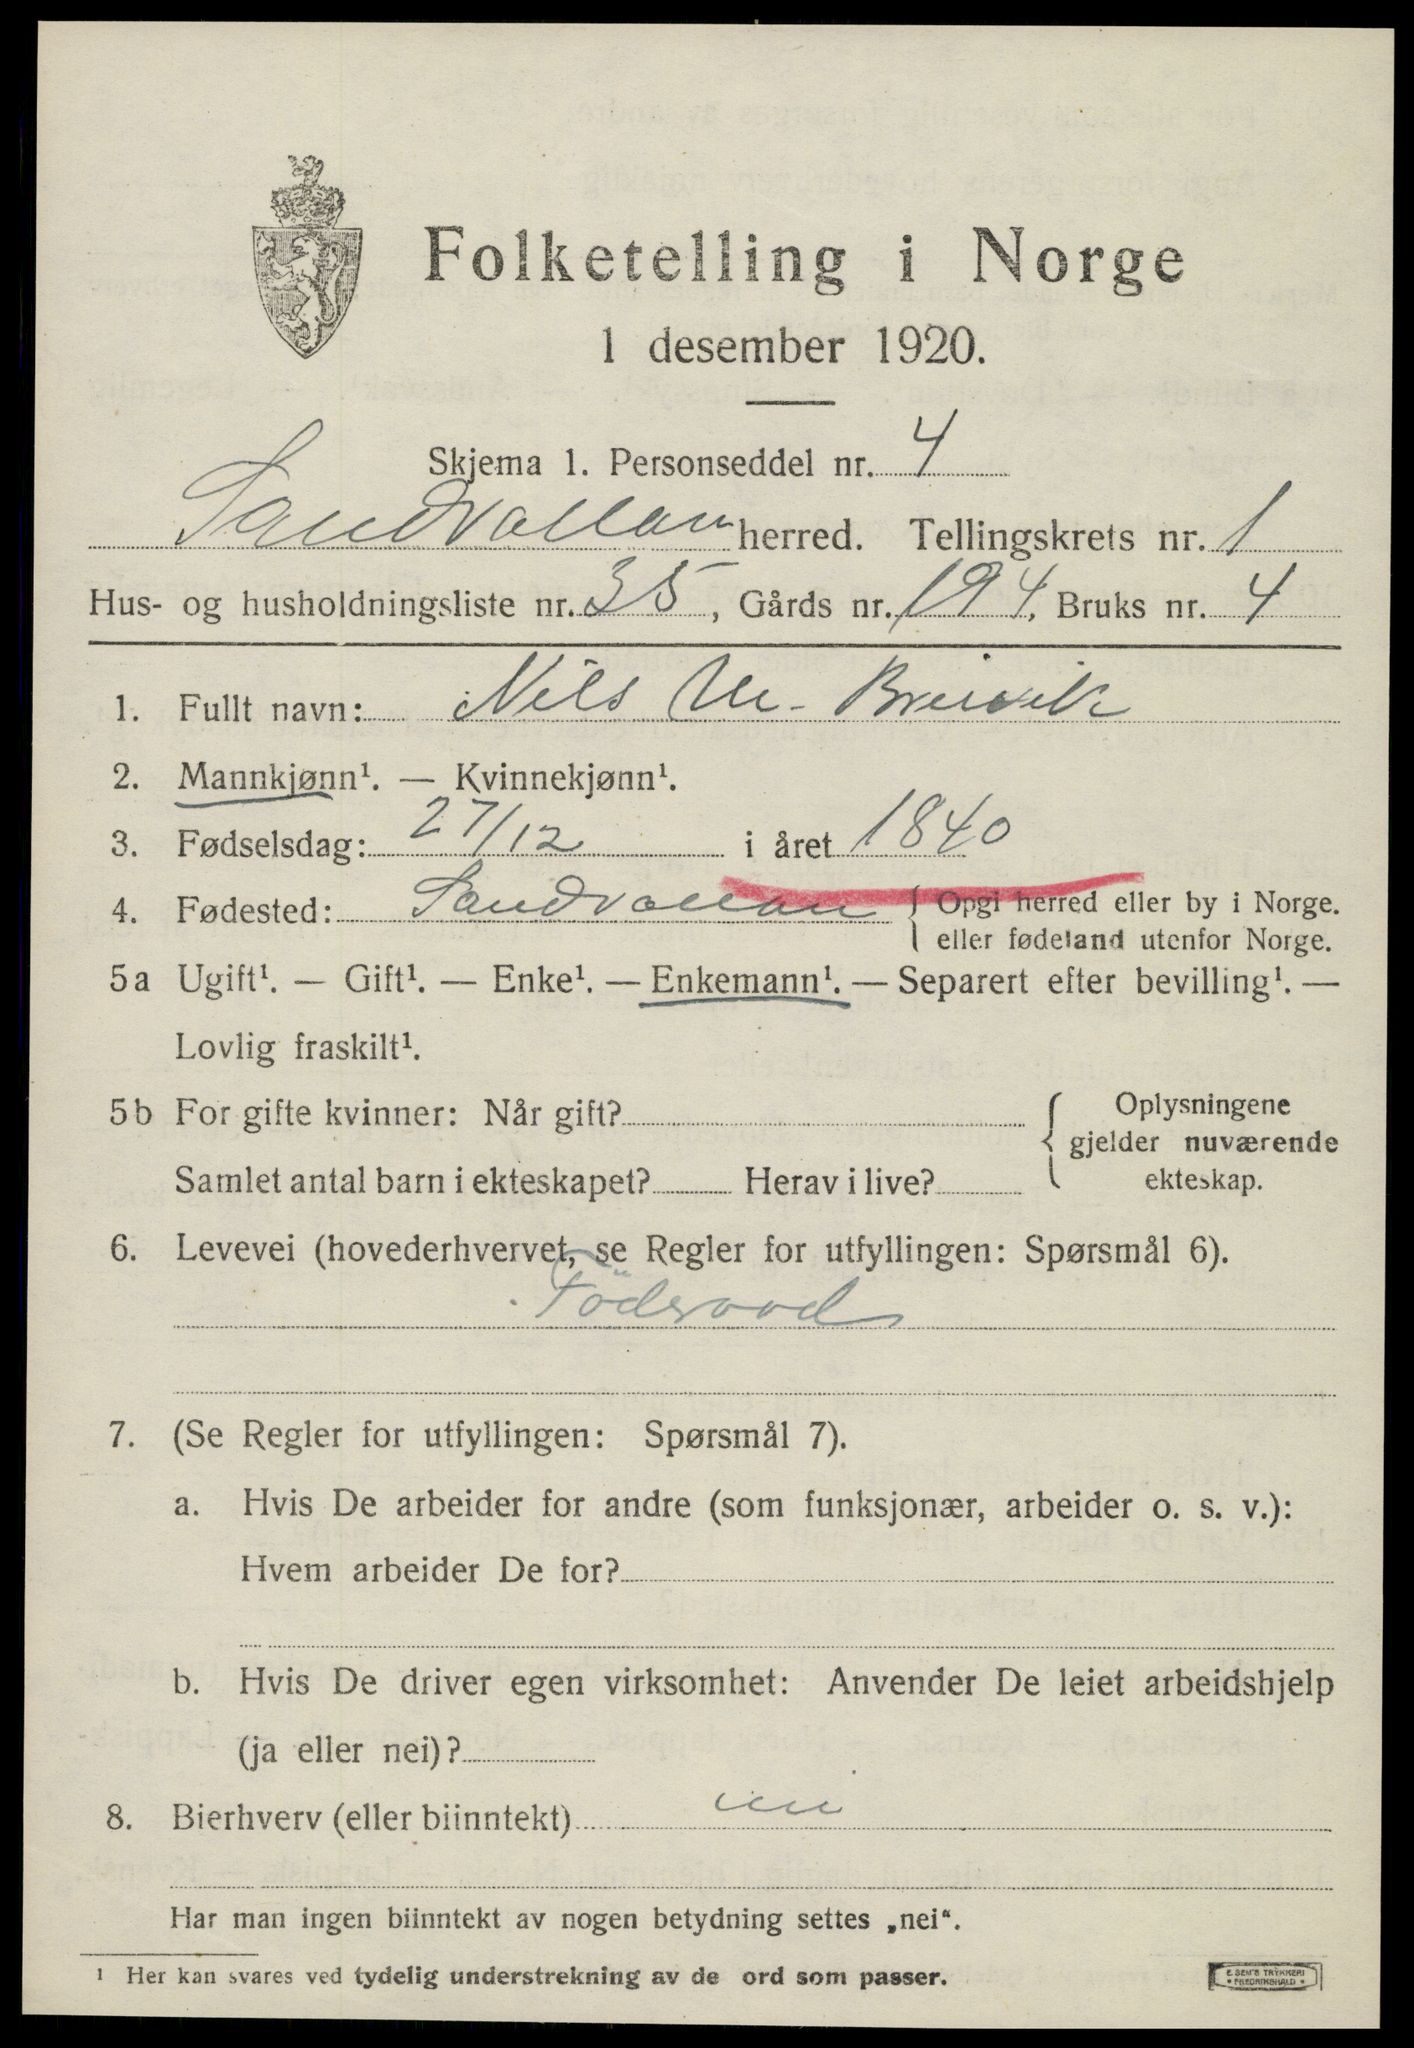 Folketelling i Norge
1 desember 1920.
Skjema 1. Personseddel nr. 4
Sandvollan herred. Tellingskrets nr. 1
Hus- og husholdningsliste nr. 35, Gårds nr. 194, Bruks nr. 4
1. Fullt navn: Nils M. Breivik
2. Mannkjønn¹. — Kvinnekjønn¹.
3. Fødselsdag: 27/12 i året 1840
4. Fødested: Sandvollan { Opgi herred eller by i Norge.
eller fødeland utenfor Norge.
5a Ugift¹. — Gift¹. — Enke¹. — Enkemann¹. — Separert efter bevilling¹. —
Lovlig fraskilt¹.
5b For gifte kvinner: Når gift?
Samlet antal barn i ekteskapet? Herav i live?
{ Oplysningene
gjelder nuværende
ekteskap.
6. Levevei (hovederhvervet, se Regler for utfyllingen: Spørsmål 6).
Föderaad
7. (Se Regler for utfyllingen: Spørsmål 7).
a. Hvis De arbeider for andre (som funksjonær, arbeider o. s. v.):
Hvem arbeider De for?
b. Hvis De driver egen virksomhet: Anvender De leiet arbeidshjelp
(ja eller nei)?
8. Bierhverv (eller biinntekt) nei
Har man ingen biinntekt av nogen betydning settes „nei“.
¹ Her kan svares ved tydelig understrekning av de ord som passer.
E. SEM'S TRYKKERI
• FREDRIKSHALD •